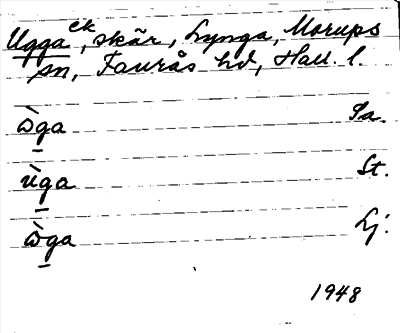 Ugga ek, skär, Lynga, Morups
sn, Faurås hd, Hall. l.
ὼga Sa.
ùga St.
ὼga Lj.
1948